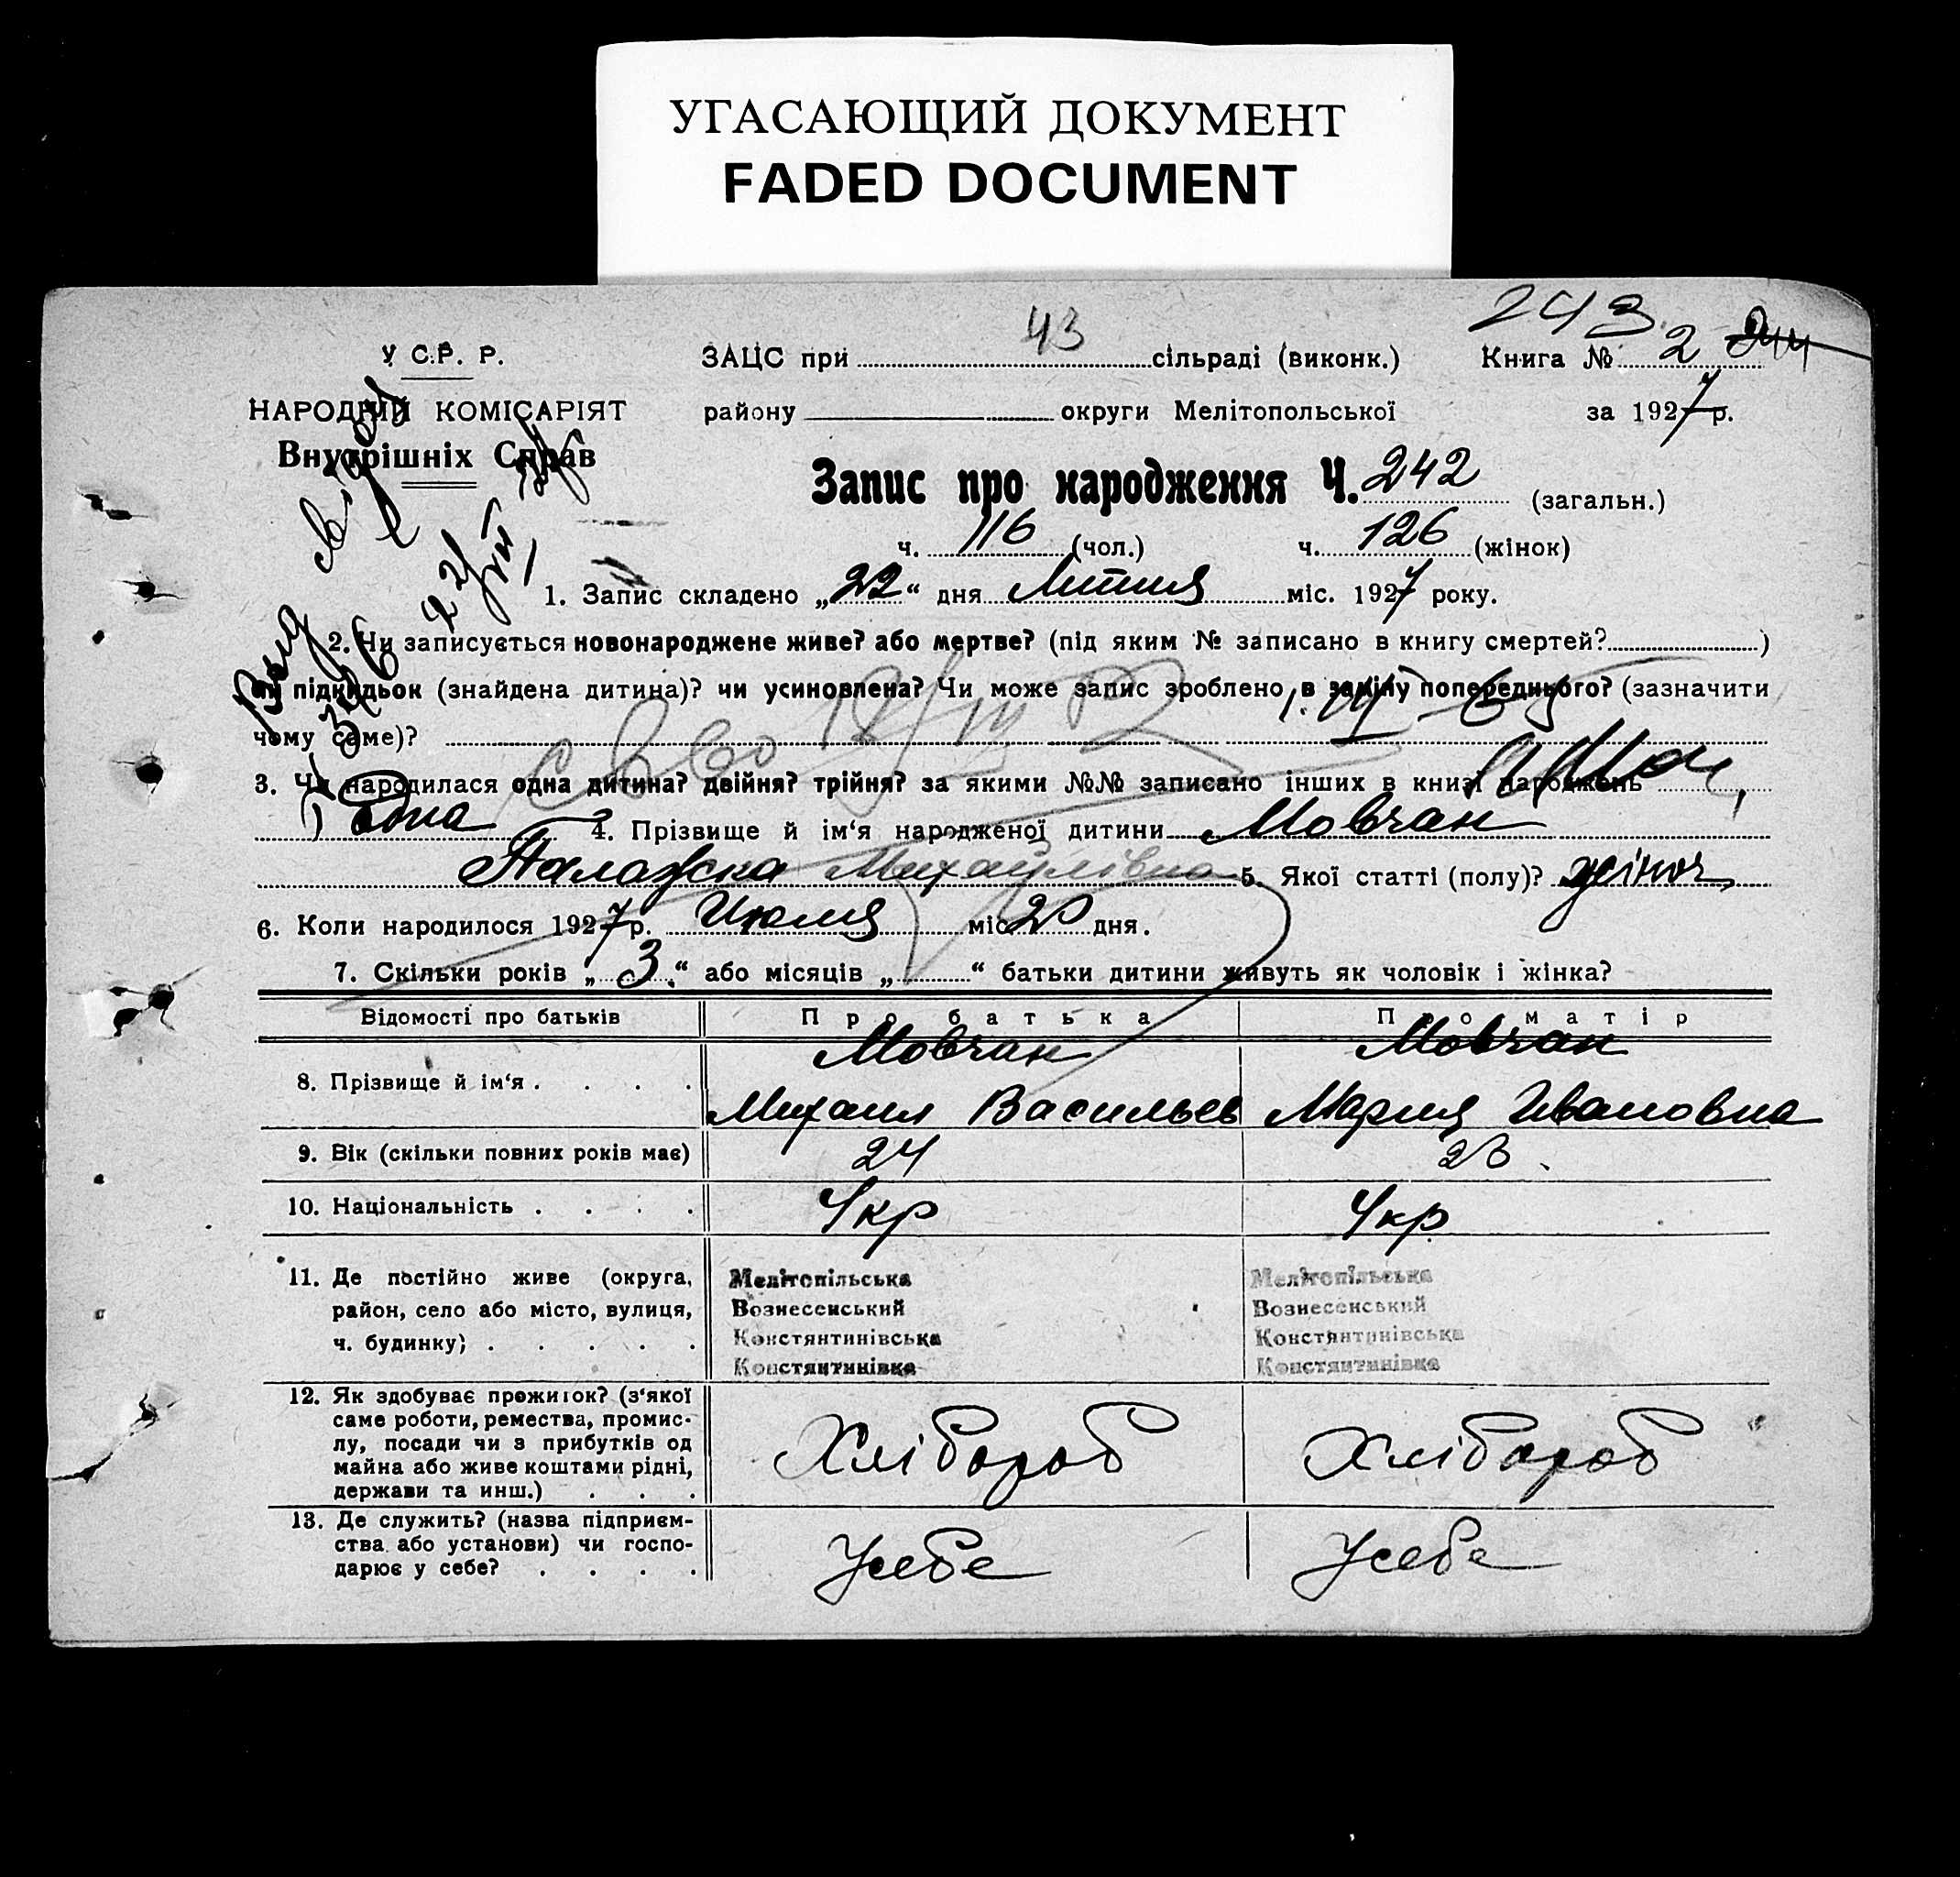 УГАСАЮЩИЙ ДОКУМЕНТ
FADED DOCUMENT
243
У С.Р. Р.
ЗАЦС при 43 сільраді (виконк.)
Книга № 2 244
НАРОДНИЙ КОМІСАРІЯТ
Внутрішніх Справ
району округи Мелітопольської
за 1927 р.
Запис про народження Ч. 242 (загальн.)
ч. 116 (чол.) ч. 126 (жінок)
1. Запис складено „22“ дня Липня міс. 1927 року.
2. Чи записується новонароджене живе? або мертве? (під яким № записано в книгу смертей? )
чи підкидьок (знайдена дитина)? чи усиновлена? Чи може запис зроблено в заміну попереднього? (зазначити
чому саме)?
3. Чи народилася одна дитина? двійня? трійня? за якими №№ записано інших в книзі народжень
Одна 4. Прізвище й ім‘я народженої дитини Мовчан
Палажка Михайлівна 5. Якої статті (полу)? жіноч.
6. Коли народилося 1927 р. Июля міс 20 дня.
7. Скільки років „3“ або місяців „ “ батьки дитини живуть як чоловік і жінка?
Відомості про батьків Про батька Про матір
8. Прізвище й ім‘я . . . . Мовчан Мовчан
Михаил Васильев Мария Ивановна
9. Вік (скільки повних років має) 24 23
10. Національність . . . . Укр Укр
11. Де постійно живе (округа, район, село або місто, вулиця, ч. будинку) . . . . .
Мелітопільська
Вознесенський
Констянтинівська
Констянтинівка
Мелітопільська
Вознесенський
Констянтинівська
Констянтинівка
12. Як здобуває прожиток? (з‘якої
саме роботи, ремества, промис-
лу, посади чи з прибутків од
майна або живе коштами рідні,
держави та инш.) . . .
Хлібороб Хлібороб
13. Де служить? (назва підприєм-
ства або установи) чи госпо-
дарює у себе? . . . .
Усебе Усебе